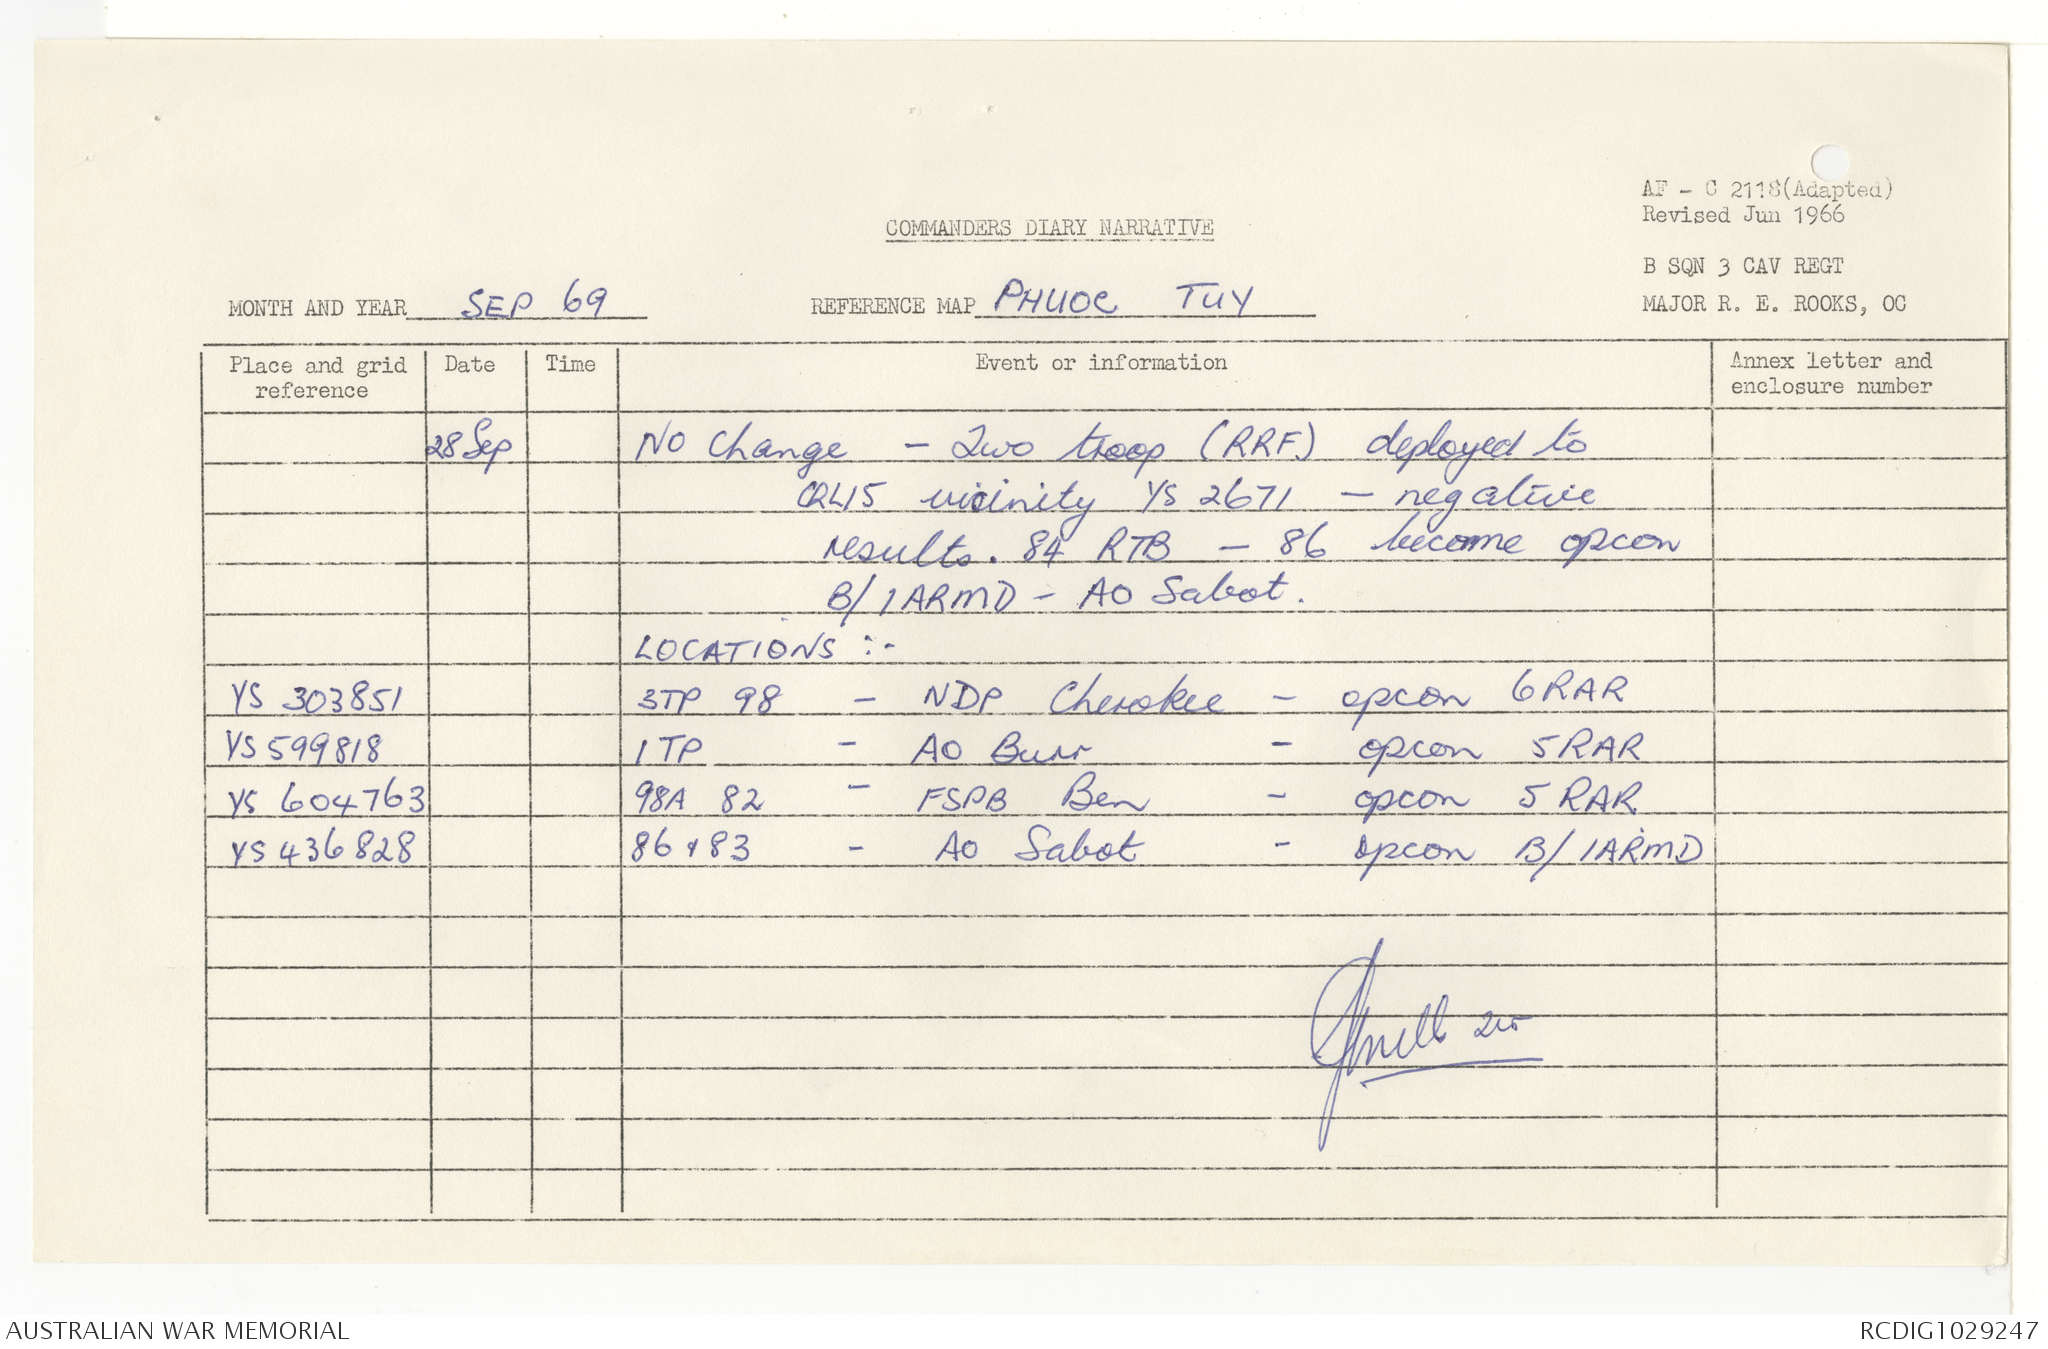 AF - C 2118(Adapted)
Revised Jun 1966
COMMANDERS DIARY NARRATIVE
B SQN 3 CAV REGT
MONTH AND YEAR SEP 69 REFERENCE MAP PHUOC TUY MAJOR R. E. ROOKS, OC
Place and grid reference Date Time Event or information Annex letter and enclosure number
28 Sep No change - Two troop (RRF) deployed to
vicinity YS 2671 - negative
results. 84 RTB - 86 become opcon
B/1ARMD - AO Sabot.
LOCATIONS :-
YS 303851 3TP 98 - NDP Cherokee - opcon 6RAR
YS 599818 1TP - AO Burr - opcon 5RAR
YS 604763 98A 82 - FSPB Ben - opcon 5RAR
YS 436828 86 + 83 - AO Sabot - opcon B/1ARMD
AUSTRALIAN WAR MEMORIAL RCDIG1029247